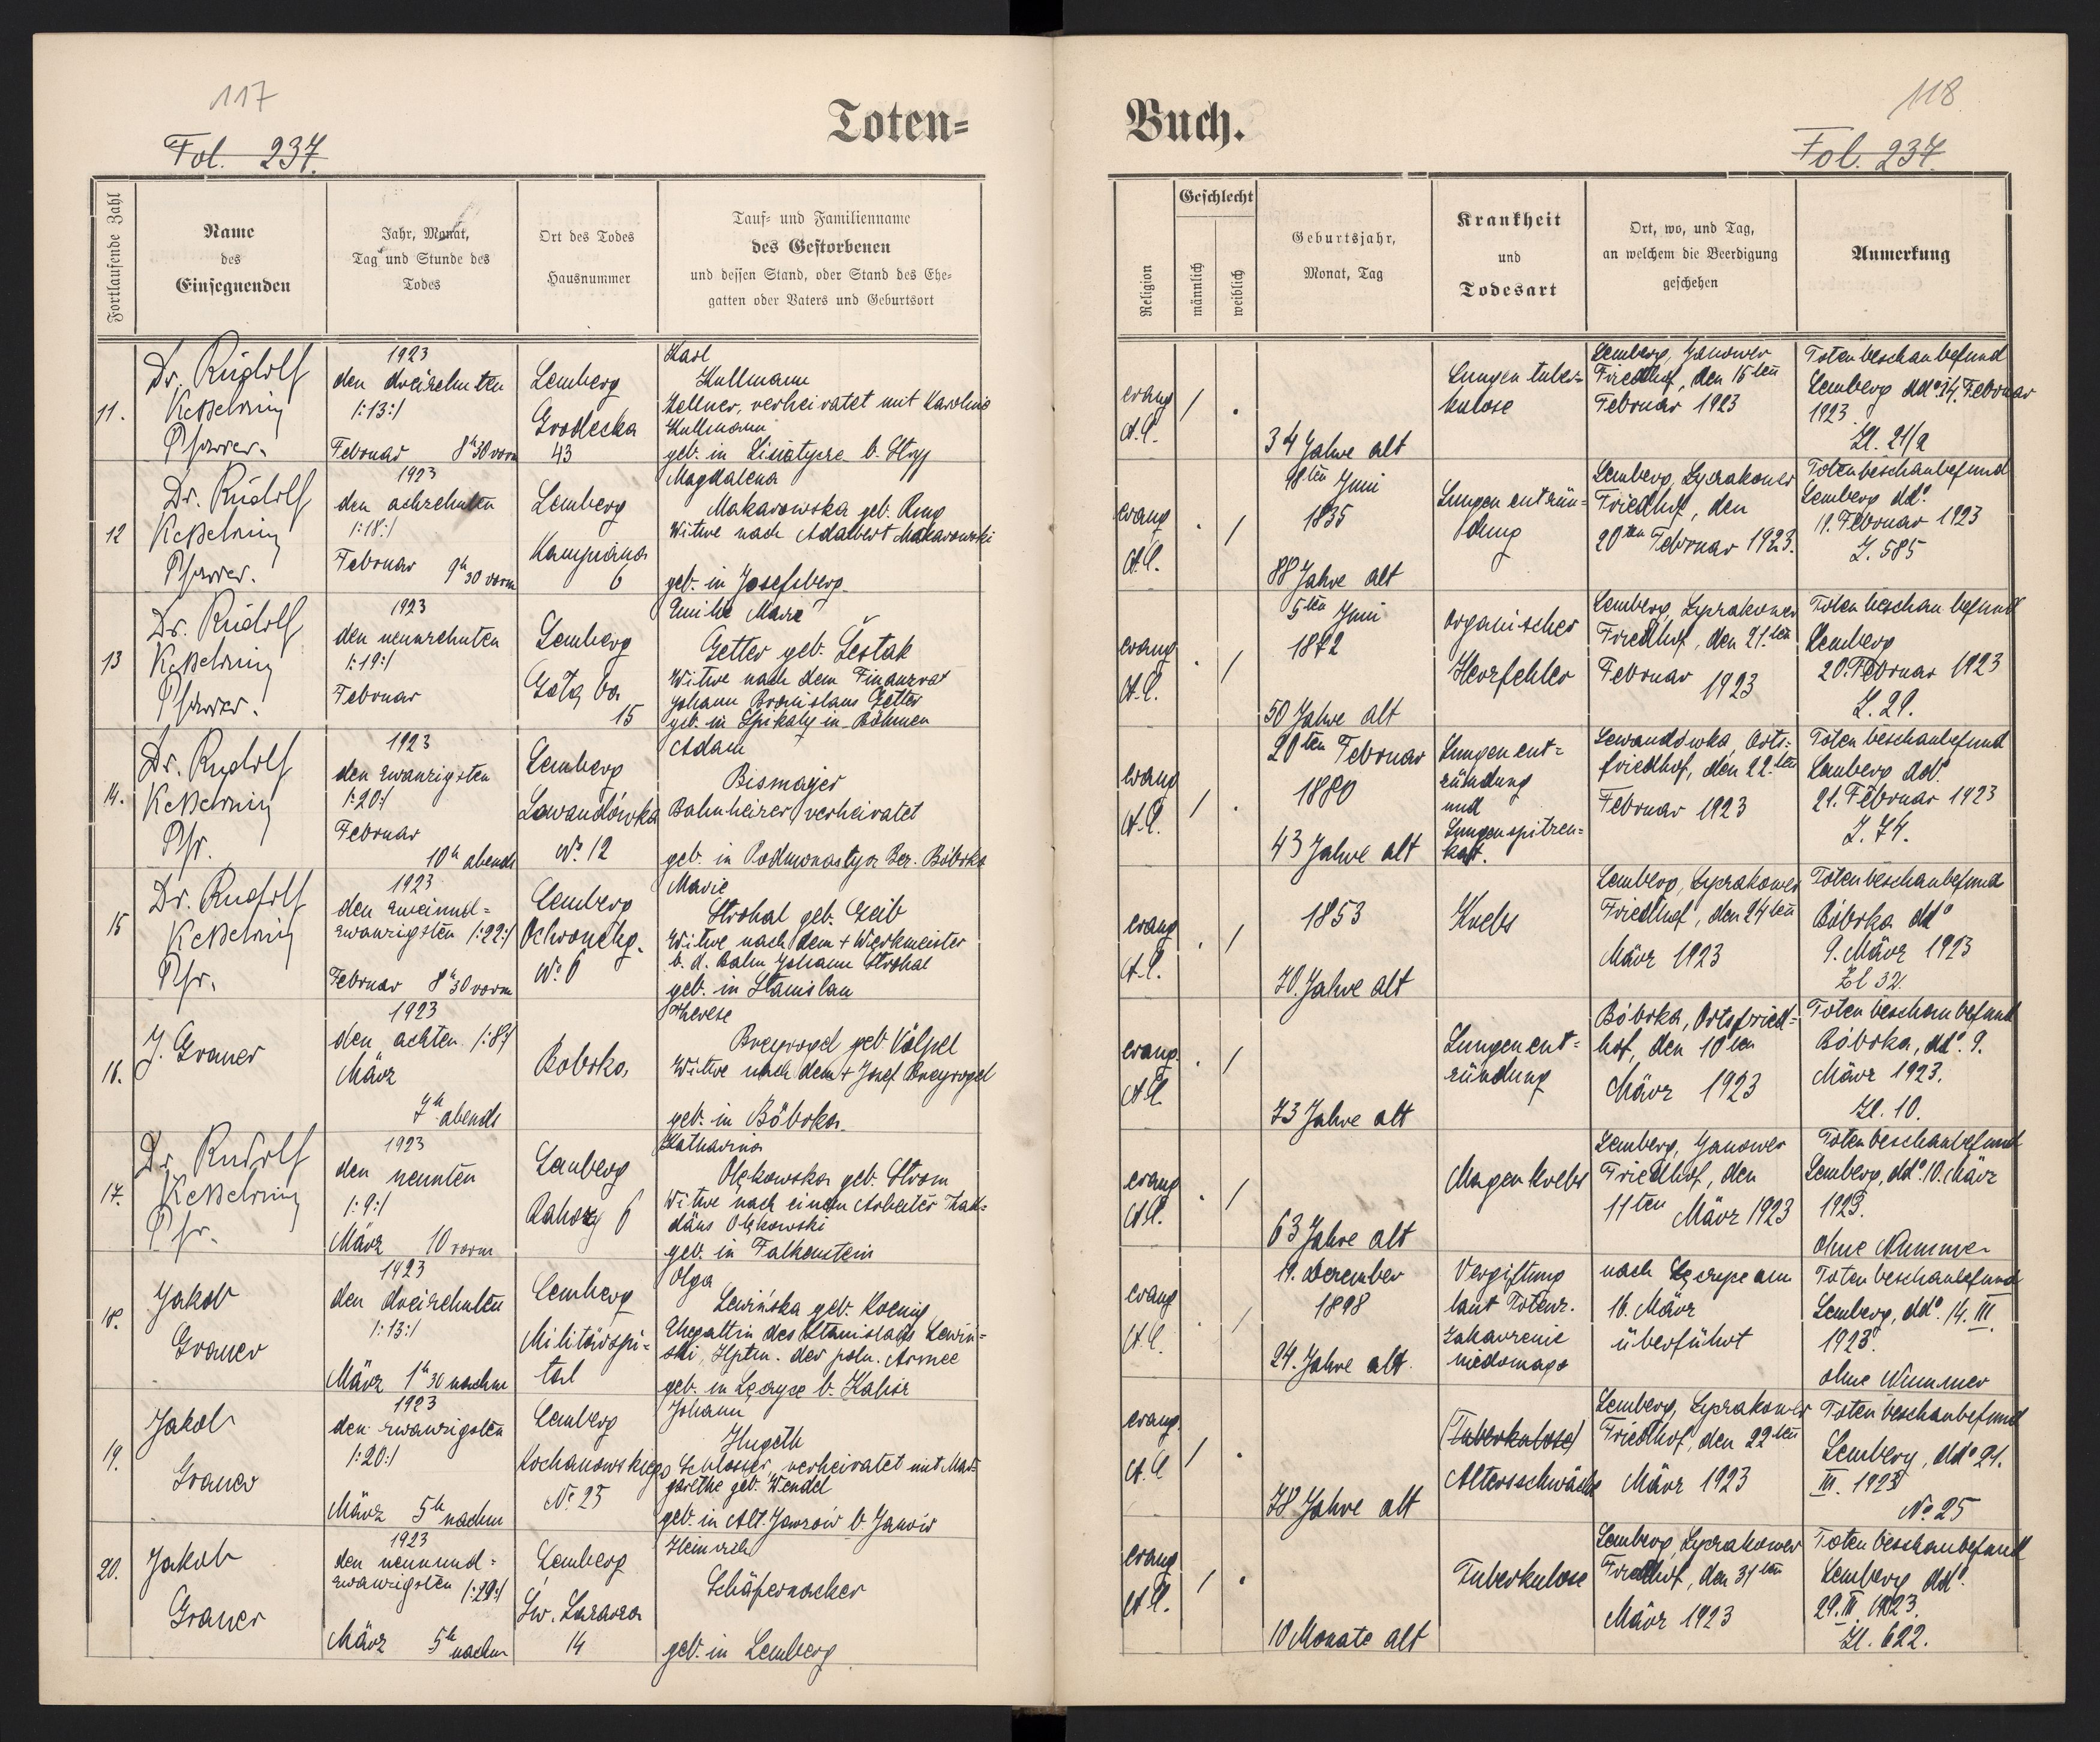 117
Fol. 237.
Toten=
Fortlaufende Zahl
Name
des
Einsegnenden
Jahr, Monat,
Tag und Stunde des
Todes
Ort des Todes
Hausnummer
Tauf- und Familienname
des Gestorbenen
und dessen Stand, oder Stand des Ehe-
gatten oder Vaters und Geburtsort
11.
Dr. Rudolf
Kesselring
Pfarrer.
1923
den dreizehnten
/:13:/
Februar 8h 30 vorm
Lemberg
Grodecka
43
Karl
Kullmann
Kellner, verheiratet mit Karoline
Kullmann
geb. in Lisiatycze b. Stryj
12
Dr. Rudolf
Kesselring
Pfarrer.
1923
den achzehnten
/:18:/
Februar 9h 30 vorm
Lemberg
Kampiana
6
Magdalena
Makarowska geb. Ring
Witwe nach Adalbert Makarowski
geb. in Josefsberg
13
Dr. Rudolf
Kesselring
Pfarrer.
1923
den neunzehnten
/:19:/
Februar
Lemberg
15
Emilie Marie
Getter geb. Šestak
Witwe nach dem Finanzrat
Johann Bronislaus Getter
geb. in Spikaly in Böhmen
14.
Dr. Rudolf
Kesselring
Pfr.
1923
den zwanzigsten
/:20:/
Februar
10h abends
Lemberg
Lewandówka
No. 12
Adam
Bismajer
Bahnheizer, verheiratet
geb. in Podmonastyr Bez. Bóbrka
15
Dr. Rudolf
Kesselring
Pfr.
1923
den zweiund=
zwanzigsten /:22:/
Februar 8h 30 vorm
Lemberg
Ochronekg.
No. 6
Marie
Strohal geb. Zeib
Witwe nach dem + Werkmeister
b. d. Bahn Johann Strohal
geb. in Stanislau
16.
J. Grauer
1923
den achten /:8:/
März
7h abends
Bobrka
Therese
Breyvogel geb. Völpel
Witwe nach dem + Josef Breyvogel
geb. in Bóbrka
17.
Dr. Rudolf
Kesselring
Pfr.
1923
den neunten
/:9:/
März 10 vorm
Lemberg
6
Katharina
Olękowska geb. Strom
Witwe nach einem Arbeiter Thad=
däus Olękowski
geb. in Falkenstein
18.
Jakob
Grauer
1923
den dreizehnten
/:13:/
März 1h 30 nachm
Lemberg
Militärspi=
tal
Olga
Lewińska geb. Koenig
Ehegattin des Stanislaus Lewin=
ski, Hptm. der poln. Armee
geb. in Łęczyce b. Kalisz
19.
Jakob
Grauer
1923
den zwanzigsten
/:20:/
März 5h nachm
Lemberg
Kochanowskiego
No. 25
Johann
Hugeth
Schlosser, verheiratet mit Mar=
garethe geb. Wendel
geb. in Alt. Jazów b. Janów
20.
Jakob
Grauer
1923
den neunund=
zwanzigsten /:29:/
März 5h nachm
Lemberg
Św. Łazarza
14
Heinrich
Schäfernacker
geb. in Lemberg
118
Buch.
Fol. 237.
Religion
Geschlecht
männlich
weiblich
Geburtsjahr,
Monat, Tag
Krankheit
und
Todesart
Ort, wo, und Tag,
an welchem die Beerdigung
geschehen
Anmerkung
evang
A.C.
34 Jahre alt
Lungentuber=
kulose
Lemberg, Janower
Friedhof, den 15ten
Februar 1923
Totenbeschaubefund
Lemberg ddo. 14. Februar
1923
Zl. 21/a
evang
A.C.
18ten Juni
1835
88 Jahre alt
Lungenentzün=
dung
Lemberg, Lyczakower
Friedhof, den
20ten Februar 1923.
Totenbeschaubefund
Lemberg ddo.
19. Februar 1923
Z. 585
evang
A.C.
5ten Juni
1872
50 Jahre alt
organischer
Herzfehler
Lemberg, Lyczakower
Friedhof, den 21.ten
Februar 1923
Totenbeschaubefund
Lemberg
20. Februar 1923
Z. 29.
evang
A.C.
20ten Februar
1880
43 Jahre alt
Lungenent=
zündung
und
Lungenspitzen=
kat.
Lewandówka, Orts=
friedhof, den 22.ten
Februar 1923
Totenbeschaubefund
Lemberg ddo.
21. Februar 1923
Z. 74.
evang
A.C.
1853
70. Jahre alt
Krebs
Lemberg, Lyczakower
Friedhof, den 24ten
März 1923
Totenbeschaubefund
Bóbrka ddo
9. März 1923
Zl 32.
evang.
A.C.
73 Jahre alt
Lungenent=
zündung
Bóbrka, Ortsfried=
hof, den 10ten
März 1923
Totenbeschaubefund
Bóbrka, ddo. 9.
März 1923.
Zl. 10.
evang
A.C.
63 Jahre alt
Magenkrebs
Lemberg, Janower
Friedhof, den
11ten März 1923
Totenbeschaubefund
Lemberg, ddo. 10. März
1923.
ohne Nummer
evang
A.C.
19. Dezember
1898
24. Jahre alt
Vergiftung
laut Totenz.
Zakażenie
niedomaga
nach Łęczyce am
16. März
überführt
Totenbeschaubefund
Lemberg, ddo. 14. III.
1923.
ohne Nummer
evang.
A.C.
78 Jahre alt
(Tuberkulose)
Altersschwäche
Lemberg, Lyczakower
Friedhof, den 22ten
März 1923
Totenbeschaubefund
Lemberg, ddo 21.
III. 1923
No. 25
evang
A.C.
10 Monate alt
Tuberkulose
Lemberg, Lyczakower
Friedhof, den 31ten
März 1923
Totenbeschaubefund
Lemberg ddo.
29. III. 1923.
Zl. 622.